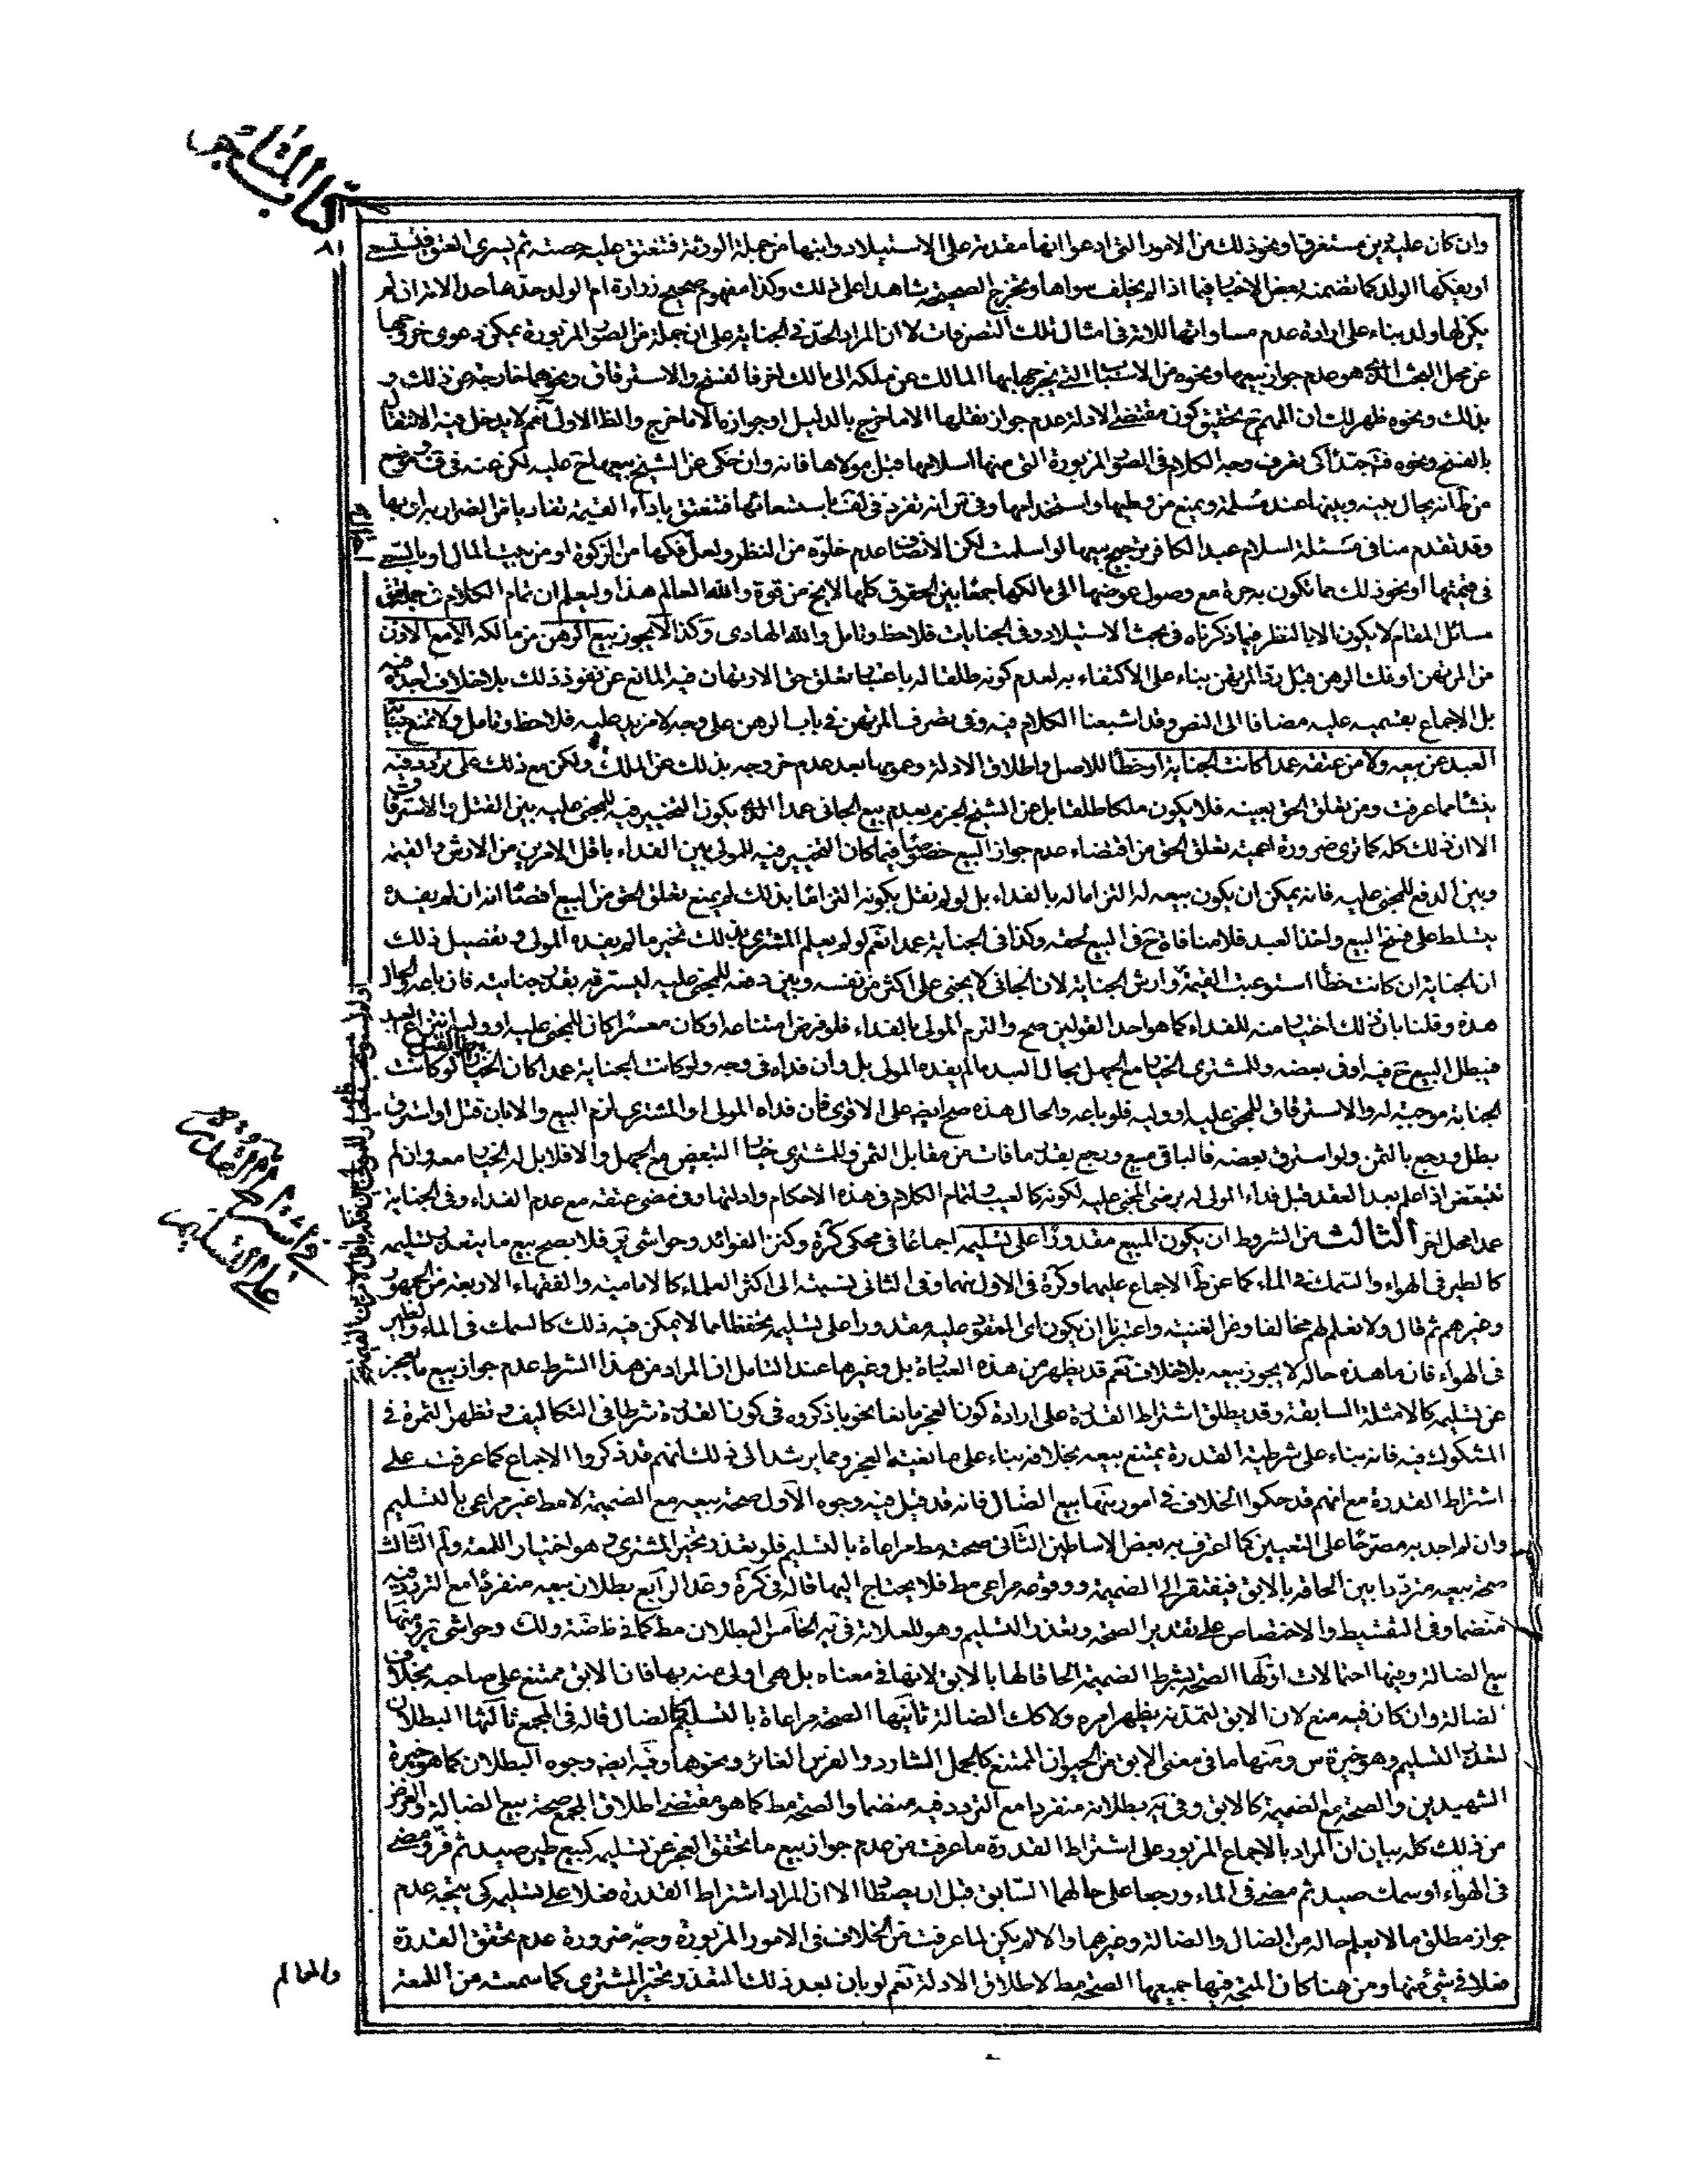 كتاب المتاجر
٨١
وان كان عليه دين مستغرقا ونحو ذلك من الامور التى ادعوا انها مقدمة على الاستيلاد وابنها من جملة الورثة فتنعتق عليه حصته ثم يسرى العتق فتستسعى
او يفكها الولد كما تضمنه بعض الاخبار فيما اذا لم يخلف سواها ومخرج الصحيحة شاهدا على ذلك وكذا مفهوم صحيح زرارة ام الولد حدها حد الامة اذا لم
يكن لها ولد بناء على ارادة عدم مساواتها للامة فى امثال تلك التصرفات لا ان المراد الحد فى الجناية على ان جملة من الصور المزبورة يمكن دعوى خروجها
عن محل البحث الذى هو عدم جواز بيعها ونحوه من الاسباب التى يخرجها بها المالك عن ملكه الى مالك اخر فالفسخ والاسترقاق ونحوهما خارجة عن ذلك و
بذلك ونحوه ظهر لك ان المهم ح تحقيق كون مقتضى الادلة عدم جواز نقلها الا ما خرج بالدليل او جوازه الا ما خرج والظ الاول نعم لا يدخل فيه الانتقال
بالفسخ ونحوه فتجه جدا كى تعرف وجه الكلام فى الصور المزبورة التى منها اسلامها قبل مولاها فانه وان حكى عن الشيخ بيعها ح عليه لكن عنه فى موضع
من ط انه يحال بينه وبينها عند مسلمة ويمنع من وطيها واستخدامها وفى انه تفرد فى باستسعائها فتنعتق باداء القيمة تفاديا من الضرار ببرائتها
وقد تقدم منا فى مسئلة اسلام عبد الكافر ترجيح بيعها لو اسلمت لكن الانصاف عدم خلوه من النظر ولعل فكها من الزكوة او من بيت المال او بالسعى
فى قيمتها او نحو ذلك مما تكون به حرة مع وصول عوضها الى مالكها جمعا بين الحقوق كلها لا يخ من قوة والله العالم هذا وليعلم ان تمام الكلام فى جملة من
مسائل المقام لا يكون الا بالنظر فيما ذكرناه فى مبحث الاستيلاد وفى الجنايات فلاحظ وتامل والله الهادى وكذا لا يجوز بيع الرهن من مالكه الا مع الاذن
من المرتهن او فك الرهن قبل رد المرتهن بناء على الاكتفاء به لعدم كونه طلقا له باعتبار تعلق حق الارتهان فيه المانع عن نفوذ ذلك بلا خلاف اجده فيه
بل الاجماع بقسميه عليه مضافا الى النص وقد اشبعنا الكلام فيه وفى تصرف المرتهن فى باب الرهن على وجه لا مزيد عليه فلاحظ وتامل ولا تمنع جناية
العبد عن بيعه ولا من عتقه عمدا كانت الجناية او خطأ للاصل واطلاق الادلة وعمومها بعد عدم خروجه بذلك عن الملك ولكن مع ذلك على تردد فيه
ينشأ مما عرفت ومن تعلق الحق بعينه فلا يكون ملكا طلقا بل عن الشيخ الجزم بعدم بيع الجانى عمدا الذى يكون التخيير فيه للمجنى عليه بين القتل والاسترقاق
الا ان ذلك كله كما ترى ضرورة اعمية تعلق الحق من اقتضاء عدم جواز البيع خصوصا فيما كان التخيير فيه للمولى بين الفداء باقل الامرين من الارش والقيمة
وبين الدفع للمجنى عليه فانه يمكن ان يكون بيعه له التزاما له بالفداء بل لو لم نقل بكونه التزاما بذلك لم يمنع تعلق الحق من البيع اقصاه انه ان لم يفده
يتسلط على فسخ البيع واخذ العبد فلا منافاة ح فى البيع لحقه وكذا فى الجناية عمدا نعم لو لم يعلم المشترى بذلك تخير ما لم يفده المولى وتفصيل ذلك
ان الجناية ان كانت خطأ استوعبت القيمة وارش الجناية لان الجانى لا يجنى على اكثر من نفسه وبين دفعه للمجنى عليه ليسترقه بقدر جنايته فان باعه والحال
هذه وقلنا بان ذلك اختيار منه للفداء كما هو احد القولين صح والتزم المولى بالفداء فلو فرض امتناعه او كان معسرا كان للمجنى عليه او وليه انتزاع العبد
فيبطل البيع ح فيه او فى بعضه وللمشترى الخيار مع الجهل بحال العبد ما لم يفده المولى بل وان فداه فى وجه ولو كانت الجناية عمدا كان الخيار لو كانت
الجناية موجبة له والاسترقاق للمجنى عليه او وليه فلو باعه والحال هذه صح ايضه على الاقوى فان فداه المولى او المشترى لزم البيع والا فان قتل او استرق
بطل ورجع بالثمن ولو استرق بعضه فالباقى مبيع ورجع بقدر ما فات من مقابل الثمن وللمشترى خيار التبعض مع الجهل والاقلا بل له الخيار معه وان لم
يتبعض اذا علم بعد العقد قبل فداء المولى له برضى المجنى عليه لكونه كالعيب وتمام الكلام فى هذه الاحكام وادلتها وفى مضى عتقه مع عدم الفداء وفى الجناية
عمدا محل اخر الثالث من الشروط ان يكون المبيع مقدورا على تسليمه اجماعا فى محكى كرة وكنز الفوائد وحواشى ير فلا يصح بيع ما يتعذر تسليمه
كالطير فى الهواء والسمك فى الماء كما عن ط الاجماع عليهما وكرة فى الاول منهما وفى الثانى نسبته الى اكثر العلماء كالامامية والفقهاء الاربعة من الجمهور
وغيرهم ثم قال ولا نعلم لهم مخالفا وعن الغنية واعتبرنا ان يكون اى المعقود عليه مقدورا على تسليمه تحفظا مما لا يمكن فيه ذلك كالسمك فى الماء والطير
فى الهواء فان ما هذه حاله لا يجوز بيعه بلا خلاف نعم قد يظهر من هذه العبارة بل وغيرها عند التامل ان المراد من هذا الشرط عدم جواز بيع ما يعجز
عن تسليمه كالامثلة السابقة وقد يطلق اشتراط القدرة على ارادة كون العجز مانعا نحو ما ذكروه فى كون القدرة شرطا فى التكاليف وتظهر الثمرة فى
المشكوك فيه فانه بناء على شرطية القدرة يمتنع بيعه بخلافه بناء على مانعية العجز ومما يرشد الى ذلك انهم قد ذكروا الاجماع كما عرفت على
اشتراط القدرة مع انهم قد حكوا الخلاف فى امور منها بيع الضال فانه قد قيل فيه وجوه الاول صحة بيعه مع الضميمة لا مط غير مراعى بالتسليم
وان لم اجد به مصرحا على التعيين كما اعترف به بعض الاساطين الثانى صحته مط مراعاة بالتسليم فلو تعذر تخير المشترى وهو اختيار اللمعة ولم الثالث
صحة بيعه مترددا بين الحاقه بالابق فيفتقر الى الضميمة ووقوعه مراعى مط فلا يحتاج اليها قاله فى كرة وعد الرابع بطلان بيعه منفردا مع التردد فيه
منضما وفى التقسيط والاختصاص على تقدير الصحة وتعذر التسليم وهو للعلامة فى يه الخامس البطلان مط كما فى ظاهر ضة ولك وحواشى ير ومنها
بيع الضالة وفيها احتمالات اولها الصحة بشرط الضميمة الحاقا لها بالابق لانها فى معناه بل هى اولى منه بها فان الابق ممتنع على صاحبه بخلاف
الضالة وان كان فيه منع لان الابق لتمدنه يظهر امره ولا كك الضالة ثانيها الصحة مراعاة بالتسليم كالضال قاله فى المجمع ثالثها البطلان
لتعذر التسليم وهو خيرة س ومنها ما فى معنى الابق من الحيوان الممتنع كالجمل الشارد والفرس الغائر ونحوها وفيه ايضه وجوه البطلان كما هو خيرة
الشهيدين والصحة مع الضميمة كالابق وفى يه بطلانه منفردا مع التردد فيه منضما والصحة مط كما هو مقتضى اطلاق المجمع صحة بيع الضالة والغرض
من ذلك كله بيان ان المراد بالاجماع المزبور على اشتراط القدرة ما عرفت من عدم جواز بيع ما تحقق العجز عن تسليمه كبيع طير صيد ثم فر ومضى
فى الهواء او سمك صيد ثم مضى فى الماء ورجعا على حالهما السابق قبل ان يصطادا الا ان المراد اشتراط القدرة فعلا على تسليمه كى يتجه عدم
جواز مطلق ما لا يعلم حاله من الضال والضالة وغيرهما والا لم يكن لما عرفت من الخلاف فى الامور المزبورة وجه ضرورة عدم تحقق القدرة
فعلا فى شىء منها ومن هنا كان المتجه فيها جميعها الصحة مط لاطلاق الادلة نعم لو بان بعد ذلك التعذر تخير المشترى كما سمعته من اللمعة
فى اشتراط القدرة
على التسليم
والمعالم